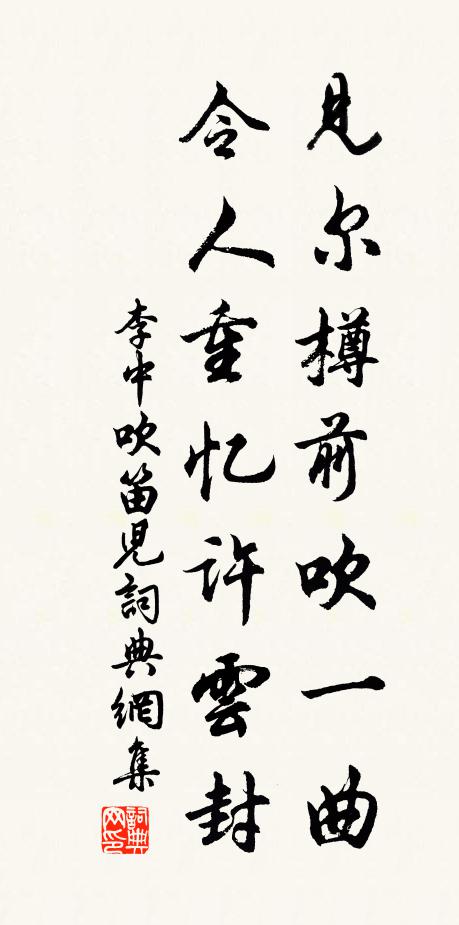 见尔樽前吹一曲
令人重忆许雲封
李中吹笛児詞典網集
詞典网印